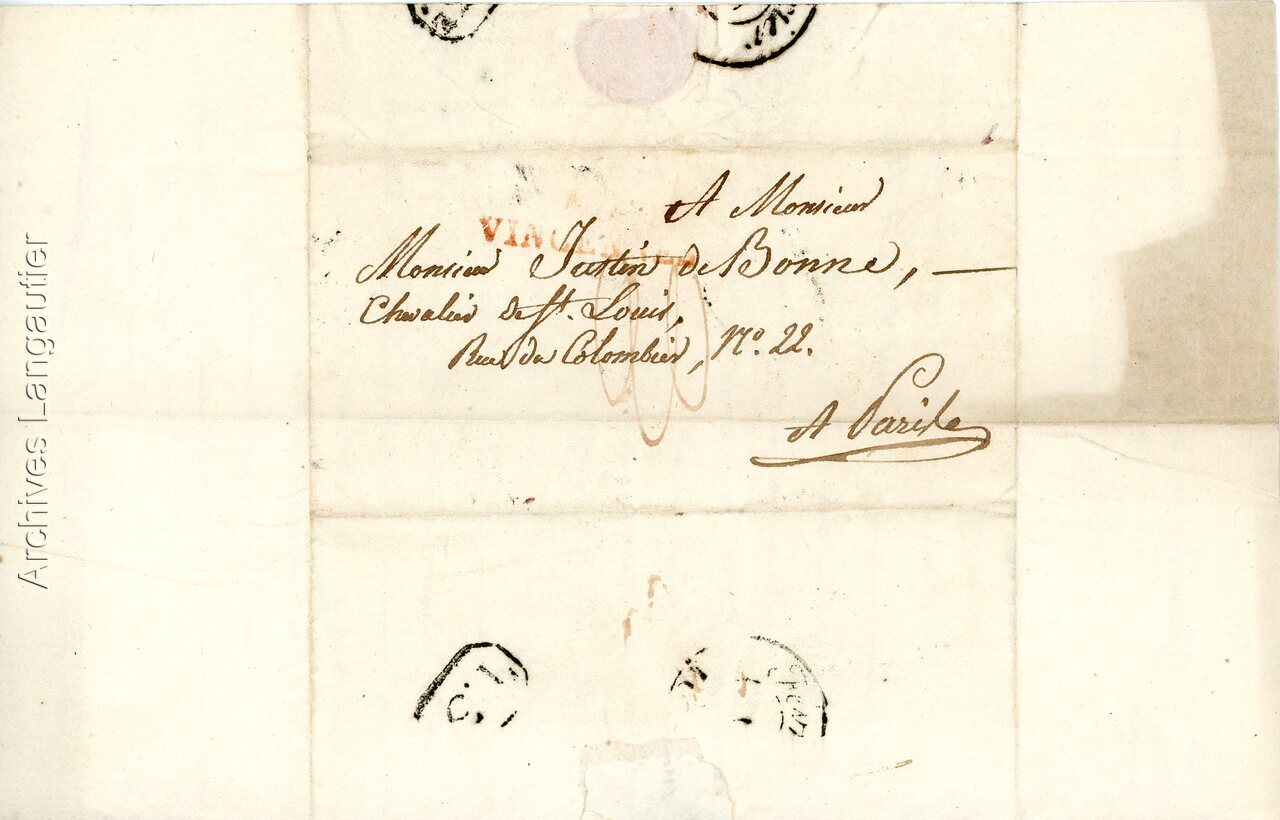 A Monsieur
VINCENNES
Monsieur Justin de Bonne, —
Chevalier de St. Louis,
Rue du Colombier, No. 22.
A Paris
C. L.
Archives Langautier